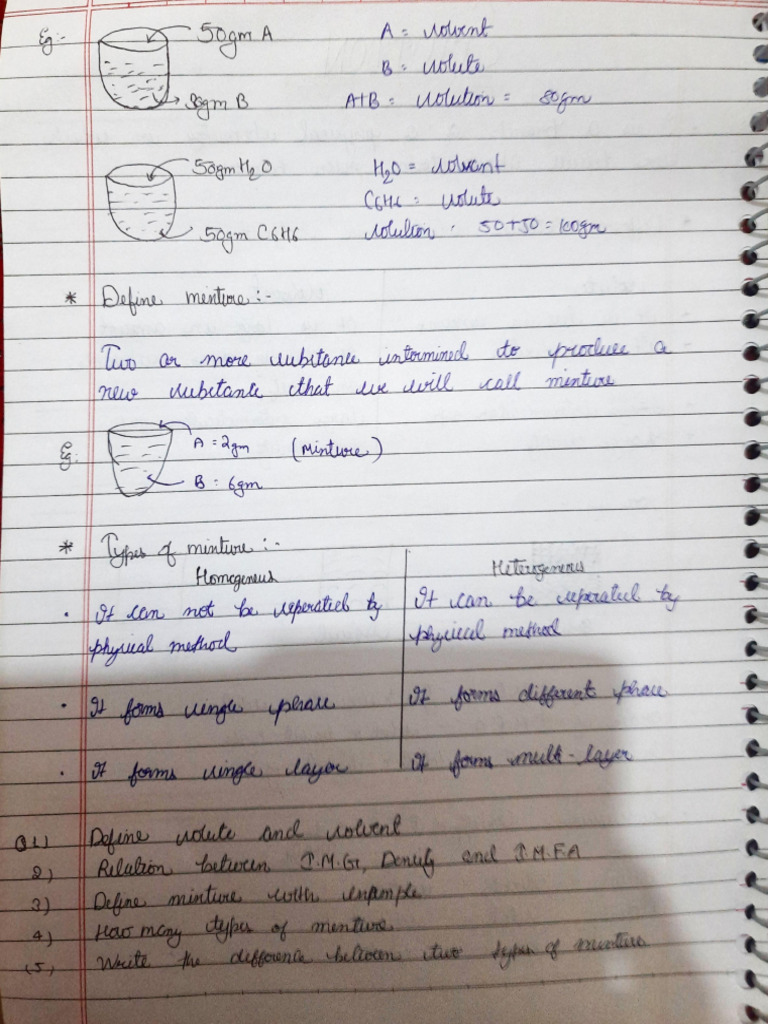 Eg:-
50gm A
A = solvent
B = solute
30gm B
A+B = solution = 80gm
50gm H2O
H2O = solvent
C6H6 = solute
50gm C6H6
solution · 50+50 = 100gm
* Define mixture :-
Two or more substance intermixed to produce a
new substance that we will call mixture
Eg:
A = 2gm (Mixture)
B : 6gm
* Types of mixture :-
Homogeneus
Heterogeneous
· It can not be seperated by
physical method
It can be seperated by
physical method
· It forms single phase
It forms different phase
· It forms single layer
It forms multi-layer
Q1) Define solute and solvent
2) Relation between I.M.G, Density and I.M.F.A
3) Define mixture with exmple
4) How many types of mexture
(5) Write the difference between two types of mixture